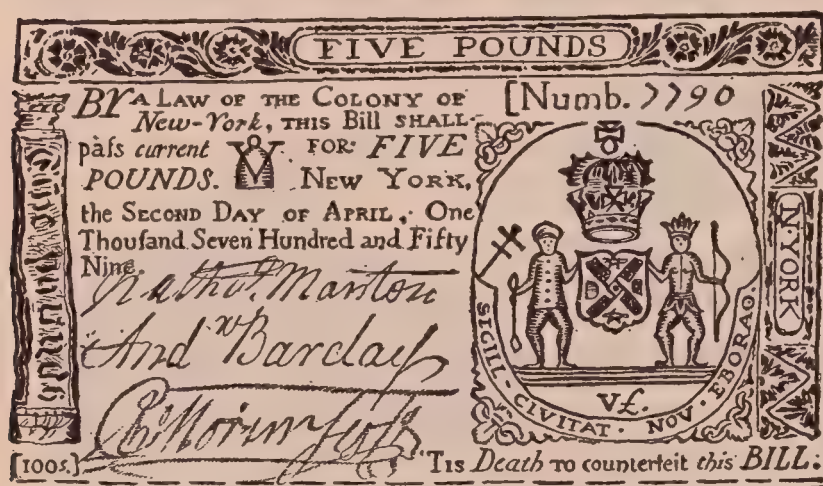 FIVE POUNDS
BY A LAW OF THE COLONY OF
New-York, THIS Bill SHALL
paſs current FOR FIVE
POUNDS. NEW YORK,
the SECOND DAY OF APRIL, One
Thouſand Seven Hundred and Fifty
Nine.
[Numb. 7790
Marston
And.w Barclay
SIGILL · CIVITAT · NOV · EBORAC.
V£.
N-YORK
[100s.]
'TIS Death TO counterfeit this BILL.